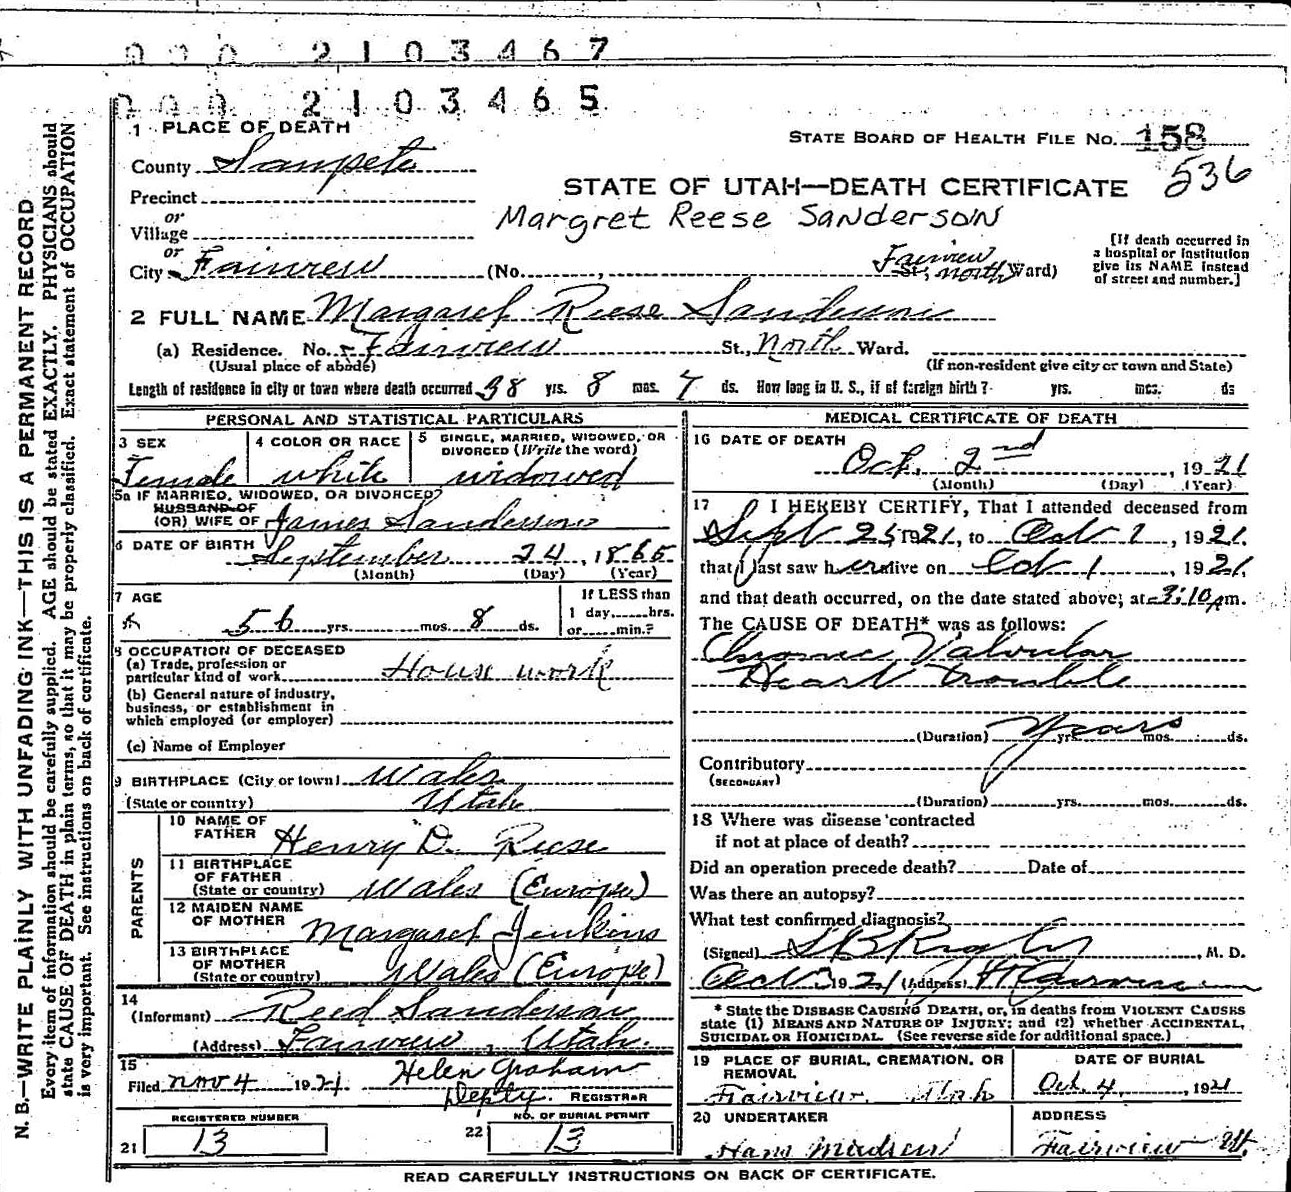 000 2103467
000 2103465
1 PLACE OF DEATH
STATE BOARD OF HEALTH FILE NO. 158
536
County Sanpete
STATE OF UTAH—DEATH CERTIFICATE
Precinct
Margret Reese Sanderson
or
Village
or
City Fairview (No. , St., Fairview North Ward)
[If death occurred in
a hospital or institution
give its NAME instead
of street and number.]
2 FULL NAME Margaret Reese Sanderson
(a) Residence. No. Fairview St., North Ward.
(Usual place of abode) (If non-resident give city or town and State)
Length of residence in city or town where death occurred 38 yrs. 8 mos. 7 ds. How long in U. S., if of foreign birth? yrs. mos. ds
PERSONAL AND STATISTICAL PARTICULARS
3 SEX Female
4 COLOR OR RACE white
5 SINGLE, MARRIED, WIDOWED, OR
DIVORCED (Write the word)
widowed
5a IF MARRIED, WIDOWED, OR DIVORCED
HUSBAND OF
(OR) WIFE OF James Sanderson
6 DATE OF BIRTH September 24, 1865
(Month) (Day) (Year)
7 AGE
56 yrs. mos. 8 ds.
If LESS than
1 day, hrs.
or min.?
8 OCCUPATION OF DECEASED
(a) Trade, profession or
particular kind of work House work
(b) General nature of industry,
business, or establishment in
which employed (or employer)
(c) Name of Employer
9 BIRTHPLACE (City or town) Wales
(State or country) Utah
PARENTS
10 NAME OF
FATHER Henry D. Reese
11 BIRTHPLACE
OF FATHER
(State or country) Wales (Europe)
12 MAIDEN NAME
OF MOTHER Margaret Jenkins
13 BIRTHPLACE
OF MOTHER
(State or country) Wales (Europe)
14
(Informant) Reed Sanderson
(Address) Fairview, Utah.
15
Filed Nov 4 1921 Helen Graham
Depty. REGISTRAR
REGISTERED NUMBER
21 13
NO. OF BURIAL PERMIT
22 13
MEDICAL CERTIFICATE OF DEATH
16 DATE OF DEATH
Oct. 2nd, 1921
(Month) (Day) (Year)
17 I HEREBY CERTIFY, That I attended deceased from
Sept 25, 1921, to Oct 1, 1921.
that I last saw her alive on Oct 1, 1921,
and that death occurred, on the date stated above, at 3:10 m.
The CAUSE OF DEATH* was as follows:
Chronic Valvular
Heart trouble
(Duration) Years yrs. mos. ds.
Contributory
(SECONDARY)
(Duration) yrs. mos. ds.
18 Where was disease contracted
if not at place of death?
Did an operation precede death? Date of
Was there an autopsy?
What test confirmed diagnosis?
(Signed) , M. D.
Oct 3 1921 (Address)
* State the DISEASE CAUSING DEATH, or, in deaths from VIOLENT CAUSES
state (1) MEANS AND NATURE OF INJURY; and (2) whether ACCIDENTAL,
SUICIDAL OR HOMICIDAL. (See reverse side for additional space.)
19 PLACE OF BURIAL, CREMATION, OR
REMOVAL
Fairview Utah
DATE OF BURIAL
Oct. 4, 1921
20 UNDERTAKER
Hans
ADDRESS
Fairview Ut.
READ CAREFULLY INSTRUCTIONS ON BACK OF CERTIFICATE.
N. B.—WRITE PLAINLY WITH UNFADING INK—THIS IS A PERMANENT RECORD
Every item of information should be carefully supplied. AGE should be stated EXACTLY. PHYSICIANS should
state CAUSE OF DEATH in plain terms, so that it may be properly classified. Exact statement of OCCUPATION
is very important. See instructions on back of certificate.